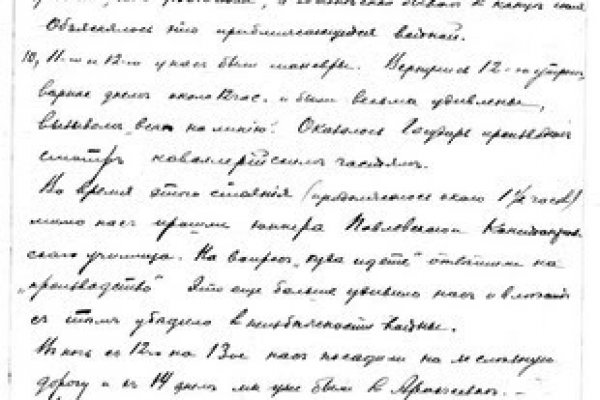 Объяснялось это приближающейся войной.
10, 11-го и 12-го у нас были маневры. Вернулись 12-го утром,
вернее днем около 12 час. и были весьма удивлены,
вызовом „всех на линию". Оказалось Государь производил
смотр кавалерийским частям.
Во время этого стояния (продолжалось около 1½ часов)
мимо нас прошли юнкера Павловского
ского училища. На вопрос „куда идете" ответили на
„производство" Это еще больше удивило нас и
с тем убедило в неизбежности войны.
В ночь с 12го на 13ое нас посадили на железную
дорогу и 14 днем мы уже были в